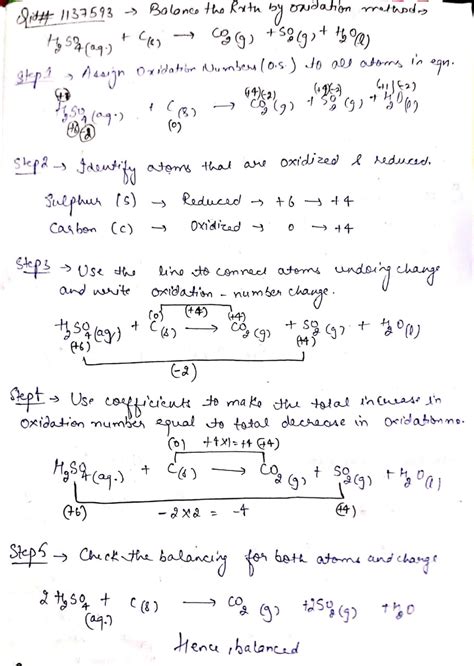 Qit# 1137593 → Balance the Rxtn by oxidation method→
H2SO4(aq.) + C(s) → CO2(g) + SO2(g) + H2O(l)
Step1 → Assign Oxidation Numbers (O.S.) to all atoms in eqn.
(+1) (+4)(-2) (+4)(-2) (+1)(-2)
H2SO4(aq.) + C(s) → CO2(g) + SO2(g) + H2O(l)
(+6) (-2) (0)
Step2 → Identify atoms that are oxidized & reduced.
Sulphur (S) → Reduced → +6 → +4
Carbon (C) → Oxidized → 0 → +4
Step3 → Use the line to connect atoms undoing change
and write oxidation-number change.
(0) (+4) (+4)
H2SO4(aq) + C(s) → CO2(g) + SO2(g) + H2O(l)
(+6) (+4)
(-2)
Step4 → Use coefficients to make the total increase in
oxidation number equal to total decrease in oxidation no.
(0) +4x1=+4 (+4)
H2SO4(aq.) + C(s) → CO2(g) + SO2(g) + H2O(l)
(+6) -2x2 = -4 (+4)
Step5 → Check the balancing for both atoms and charge
2 H2SO4(aq.) + C(s) → CO2(g) + 2SO2(g) + H2O
Hence, balanced